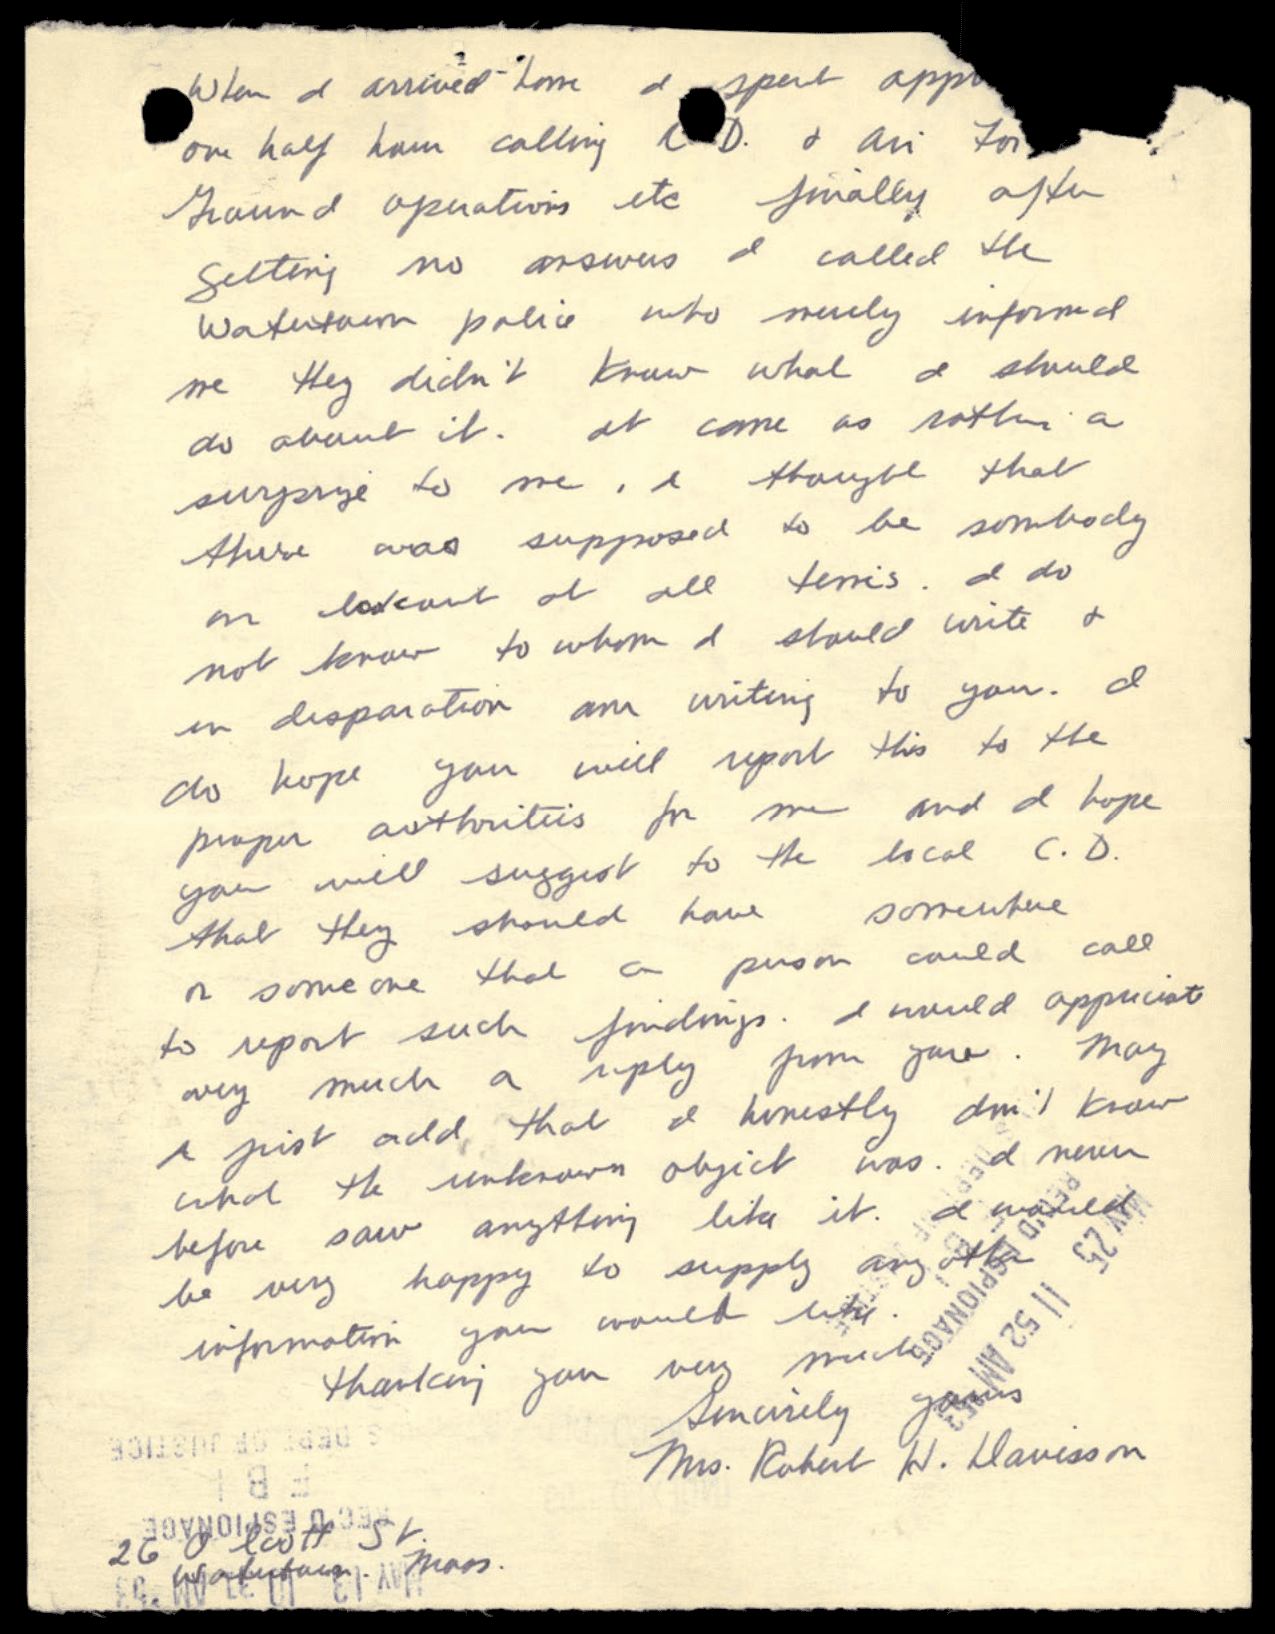 When I arrived home I spent appr
one half hour calling C. D. & Air For
Ground operations etc finally after
getting no answers I called the
Watertown police who merely informed
me they didn't know what I should
do about it. It came as rather a
surprize to me, I thought that
there was supposed to be sombody
on lookout at all times. I do
not know to whom I should write &
in disparation am writing to you. I
do hope you will report this to the
proper authorities for me and I hope
you will suggest to the local C. D.
that they should have somewhere
or someone that a person could call
to report such findings. I would appreciate
very much a reply from you. May
I just add, that I honestly don't know
what the unknown object was. I never
before saw anything like it. I would
be very happy to supply any other
information you would like.
Thanking you very much
Sincirely yours
Mrs. Robert H. Davisson
26 Olcott St.
Watertown. Mass.
REC'D ESPIONAGE
MAY 25 11 52 AM '53
S DEPT OF JUSTICE
F B I
REC'D ESPIONAGE
MAY 13 10 AM '53